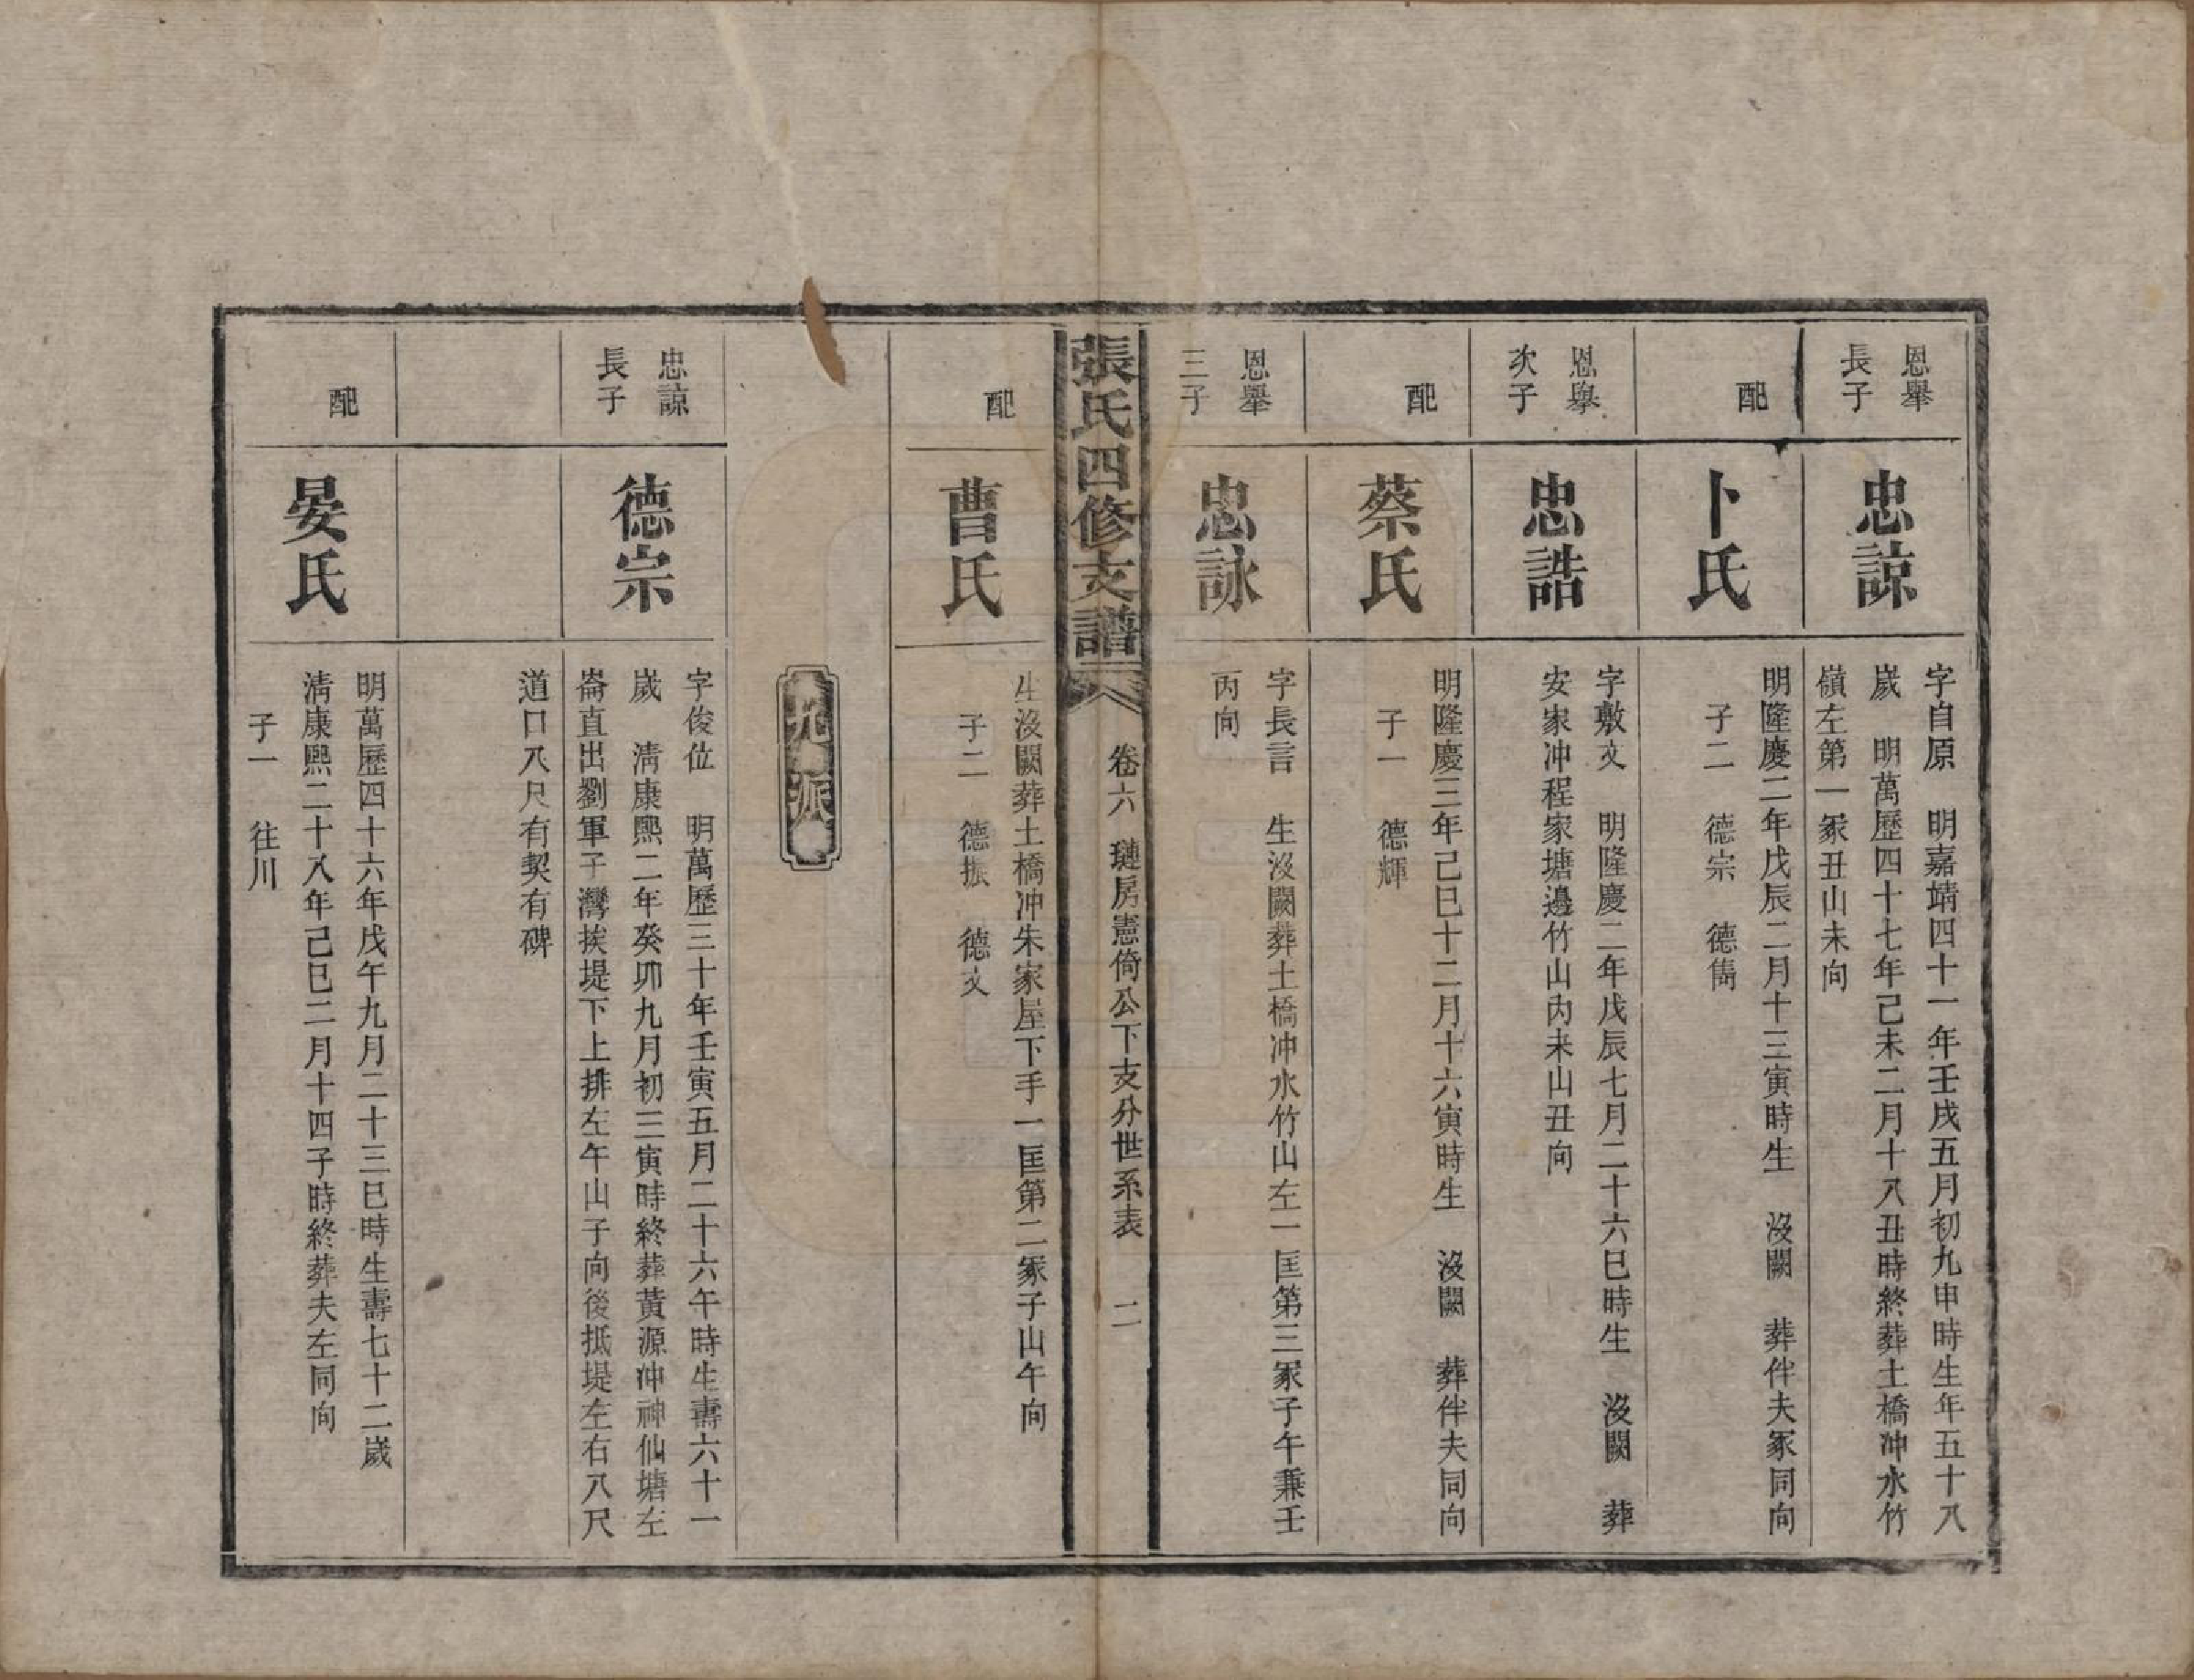 恩舉
長子
忠諒
字自原　明嘉靖四十一年壬戌五月初九申時生年五十八
歲　明萬歷四十七年己未二月十八丑時終葬土橋冲水竹
嶺左第一冢丑山未向
配
卜氏
明隆慶二年戊辰二月十三寅時生　沒闕　葬伴夫冢同向
子二　德宗　德雋
恩舉
次子
忠誥
字敷文　明隆慶二年戊辰七月二十六巳時生　沒闕　葬
安家冲程家塘邊竹山內未山丑向
配
蔡氏
明隆慶三年己巳十二月十六寅時生　沒闕　葬伴夫同向
子一　德輝
恩舉
三子
忠詠
字長言　生沒闕葬土橋冲水竹山左一匡第三冢子午兼壬
丙向
張氏四修支譜　卷六　璉房憲倚公下支分世系表　二
配
曹氏
生沒闕葬土橋冲朱家屋下手一匡第二冢子山午向
子二　德振　德文
派
忠諒
長子
德宗
字俊位　明萬歷三十年壬寅五月二十六午時生壽六十一
歲　清康熙二年癸卯九月初三寅時終葬黃源冲神仙塘左
崙直出劉軍子灣挨堤下上排左午山子向後抵堤左右八尺
道口八尺有契有碑
配
晏氏
明萬歷四十六年戊午九月二十三巳時生壽七十二歲
清康熙二十八年己巳二月十四子時終葬夫左同向
子一　往川